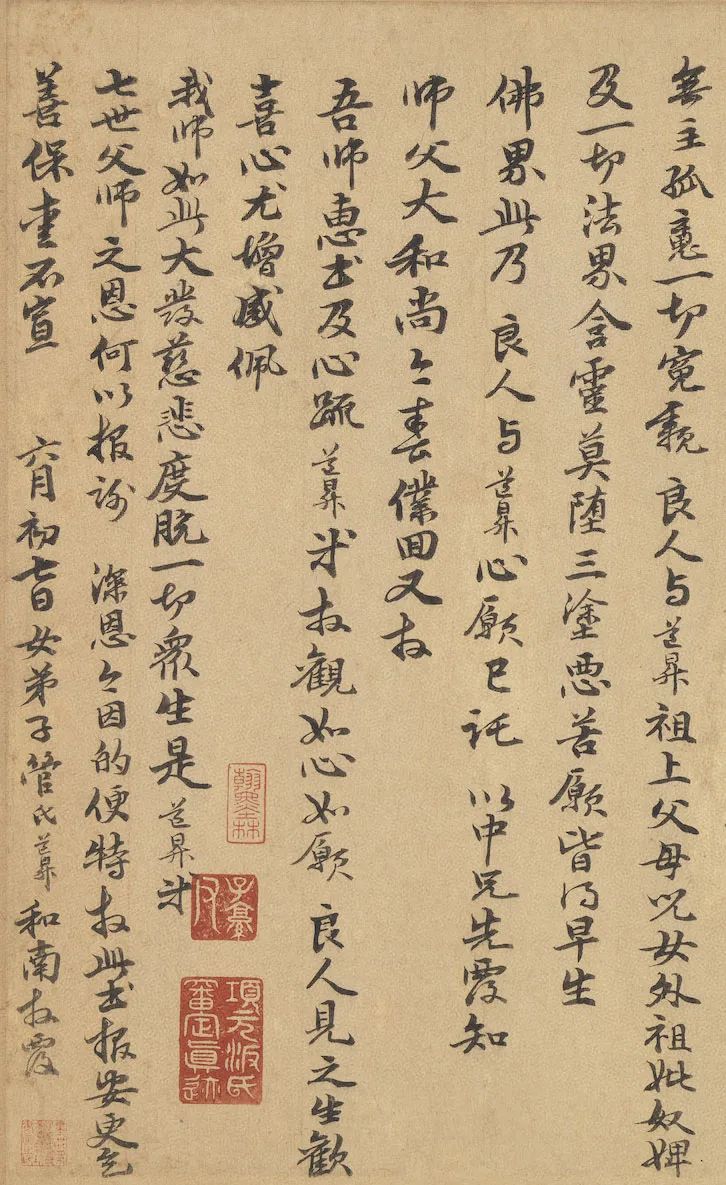 無主孤魂一切寃親 良人与道昇祖上父母児女外祖妣奴婢
及一切法界含靈莫堕三塗惡苦願皆得早生
佛界此乃 良人与道昇心願已託 以中兄先覆知
師父大和尚今春僕回又拜
吾師惠書及心疏道昇才拜觀如心如願 良人見之生歡
喜心尤增感佩
我師如此大發慈悲度脱一切衆生是道昇才
七世父師之恩何以報謝 深恩今因的便特拜此書報安更乞
善保重不宣 六月初七日女弟子管氏道昇和南拜覆
項元汴氏
審定真迹